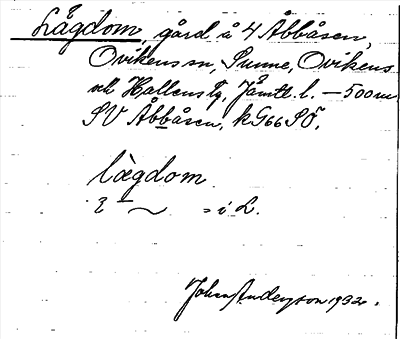 Lågdom, gård å 4 Åbbåsen,
Ovikens sn, Sunne, Ovikens
och Hallens tg, Jämtl. l. — 500 m
SV Åbbåsen, kG66SÖ.
lågdom
= i L.
Johan Anderson 1932.